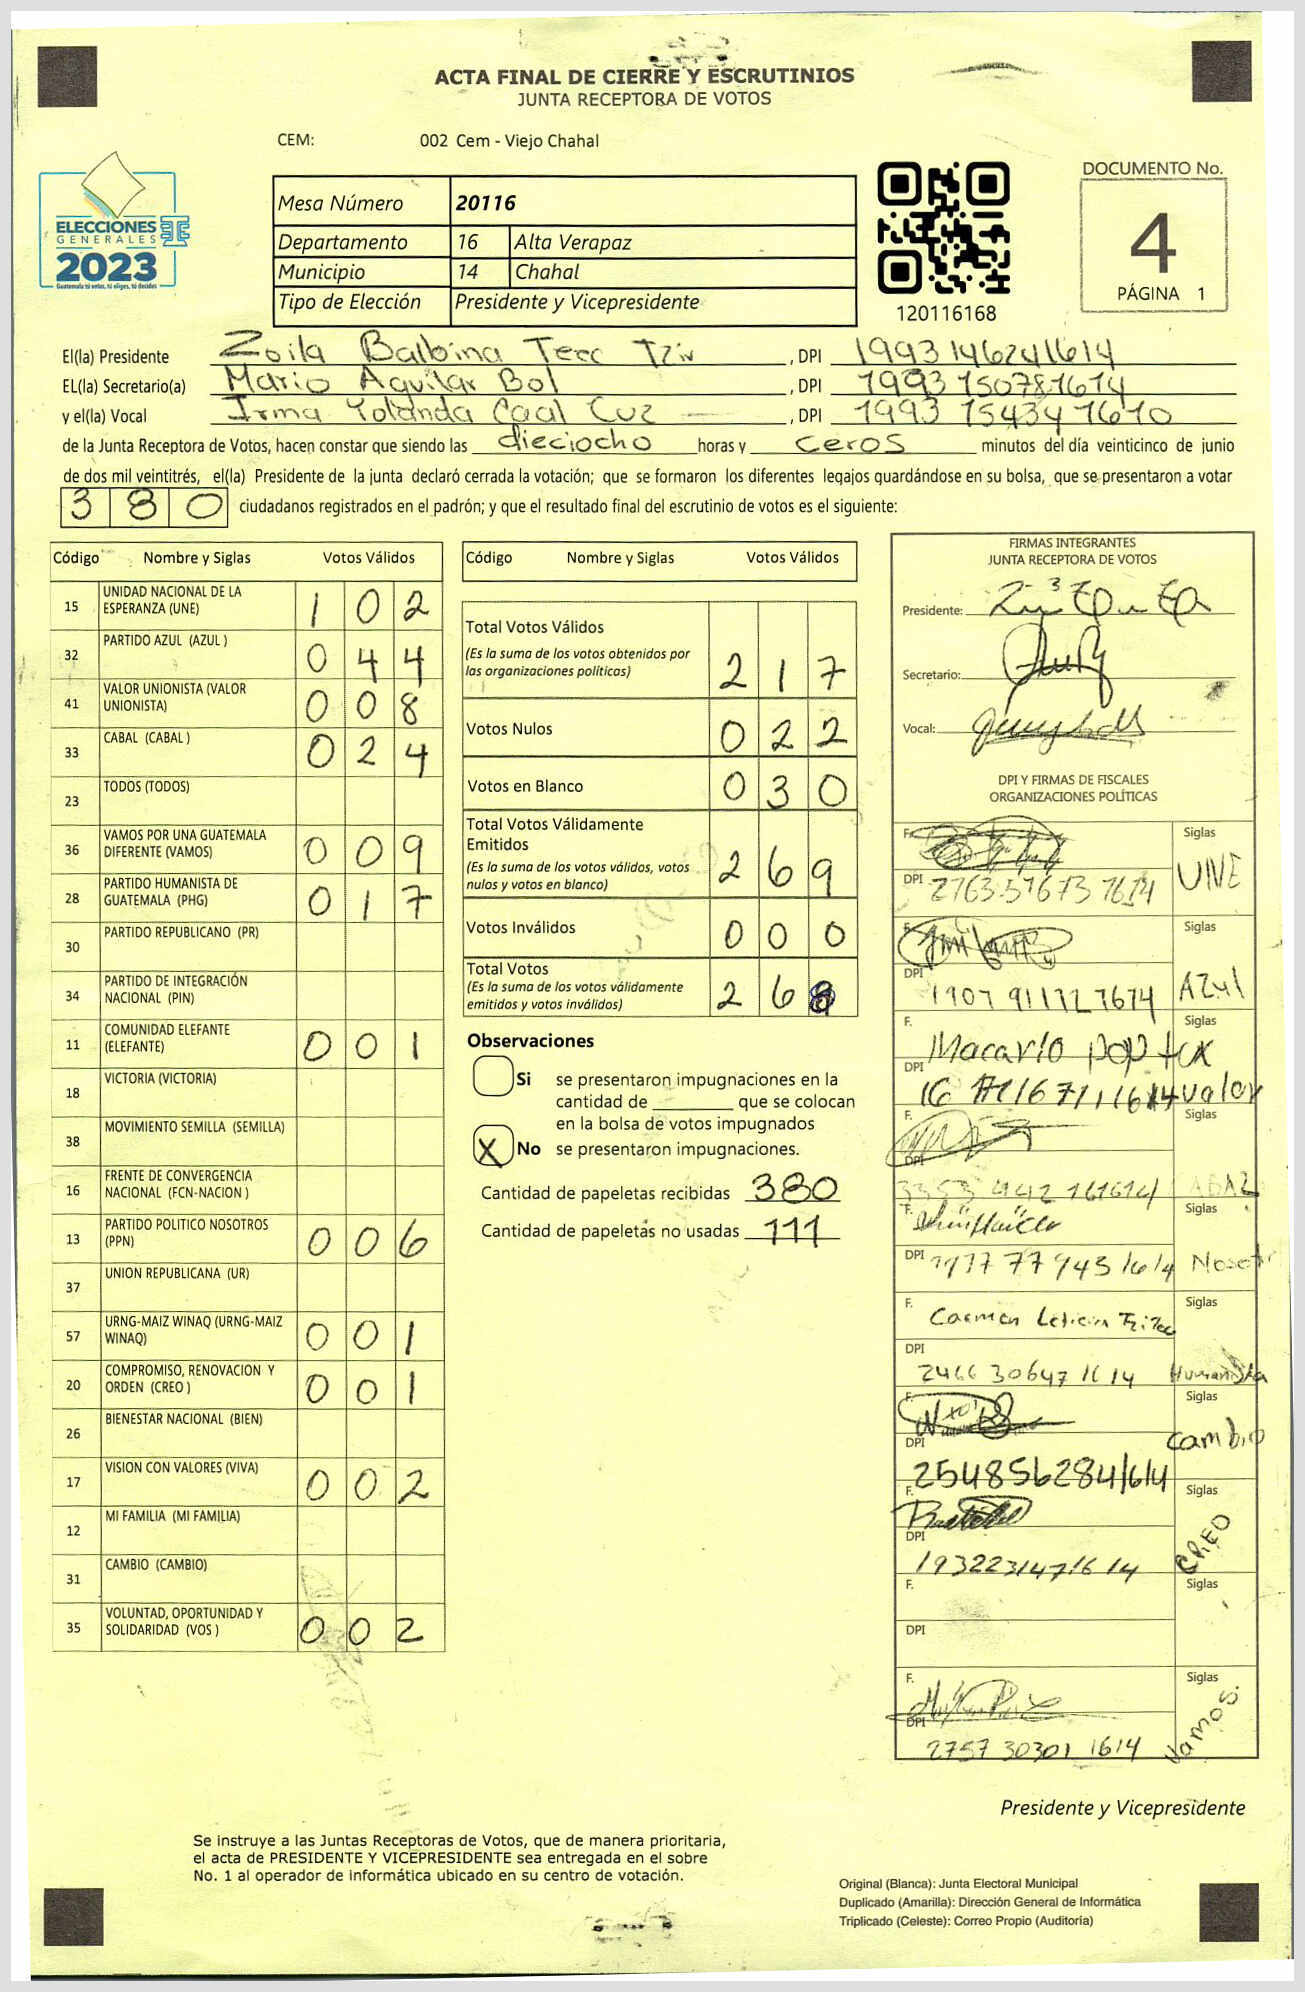 ACTA FINAL DE CIERRE Y ESCRUTINIOS
JUNTA RECEPTORA DE VOTOS
CEM: 002 Cem - Viejo Chahal
ELECCIONES
GENERALES
2023
Guatemala tú votas, tú eliges, tú decides
Mesa Número 20116
Departamento 16 Alta Verapaz
Municipio 14 Chahal
Tipo de Elección Presidente y Vicepresidente
120116168
DOCUMENTO No.
4
PÁGINA 1
El(la) Presidente Zoila Balbina Tecc Tziv, DPI 1993146241614
EL(la) Secretario(a) Mario Aguilar Bol, DPI 1993150781614
y el(la) Vocal Irma Yolanda Caal Cuz, DPI 1993154341610
de la Junta Receptora de Votos, hacen constar que siendo las dieciocho horas y ceros minutos del día veinticinco de junio
de dos mil veintitrés, el(la) Presidente de la junta declaró cerrada la votación; que se formaron los diferentes legajos guardándose en su bolsa, que se presentaron a votar
380 ciudadanos registrados en el padrón; y que el resultado final del escrutinio de votos es el siguiente:
Código Nombre y Siglas Votos Válidos
15 UNIDAD NACIONAL DE LA ESPERANZA (UNE) 102
32 PARTIDO AZUL (AZUL ) 044
41 VALOR UNIONISTA (VALOR UNIONISTA) 008
33 CABAL (CABAL ) 024
23 TODOS (TODOS)
36 VAMOS POR UNA GUATEMALA DIFERENTE (VAMOS) 009
28 PARTIDO HUMANISTA DE GUATEMALA (PHG) 017
30 PARTIDO REPUBLICANO (PR)
34 PARTIDO DE INTEGRACIÓN NACIONAL (PIN)
11 COMUNIDAD ELEFANTE (ELEFANTE) 001
18 VICTORIA (VICTORIA)
38 MOVIMIENTO SEMILLA (SEMILLA)
16 FRENTE DE CONVERGENCIA NACIONAL (FCN-NACION )
13 PARTIDO POLITICO NOSOTROS (PPN) 006
37 UNION REPUBLICANA (UR)
57 URNG-MAIZ WINAQ (URNG-MAIZ WINAQ) 001
20 COMPROMISO, RENOVACION Y ORDEN (CREO ) 001
26 BIENESTAR NACIONAL (BIEN)
17 VISION CON VALORES (VIVA) 002
12 MI FAMILIA (MI FAMILIA)
31 CAMBIO (CAMBIO)
35 VOLUNTAD, OPORTUNIDAD Y SOLIDARIDAD (VOS ) 002
Código Nombre y Siglas Votos Válidos
Total Votos Válidos 217
(Es la suma de los votos obtenidos por
las organizaciones políticas)
Votos Nulos 022
Votos en Blanco 030
Total Votos Válidamente
Emitidos 269
(Es la suma de los votos válidos, votos
nulos y votos en blanco)
Votos Inválidos 000
Total Votos 26
(Es la suma de los votos válidamente
emitidos y votos inválidos)
Observaciones
Si se presentaron impugnaciones en la
cantidad de ________ que se colocan
en la bolsa de votos impugnados
X No se presentaron impugnaciones.
Cantidad de papeletas recibidas 380
Cantidad de papeletas no usadas 111
FIRMAS INTEGRANTES
JUNTA RECEPTORA DE VOTOS
Presidente:
Secretario:
Vocal:
DPI Y FIRMAS DE FISCALES
ORGANIZACIONES POLÍTICAS
F. Siglas
DPI 2763 57673 1614 UNE
F. Siglas
DPI 1907 91172 1614 AZUL
F. Macario pop tux Siglas
DPI valor
F. Siglas
DPI
F. Siglas
DPI Nosotr
F. Carmen Leticia Siglas
DPI 2466 30647 1614 Humanista
F. Siglas
DPI 2548562841614 cambio
F. Siglas
DPI 1932231471614 CREO
F. Siglas
DPI
F. Siglas
DPI 2757 30301 1614 Vamos.
Presidente y Vicepresidente
Se instruye a las Juntas Receptoras de Votos, que de manera prioritaria,
el acta de PRESIDENTE Y VICEPRESIDENTE sea entregada en el sobre
No. 1 al operador de informática ubicado en su centro de votación.
Original (Blanca): Junta Electoral Municipal
Duplicado (Amarilla): Dirección General de Informática
Triplicado (Celeste): Correo Propio (Auditoría)